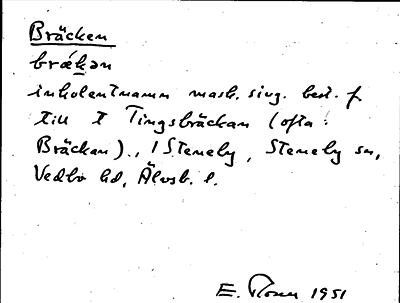 Bräcken
brǽkən
inkolentnamn mask. sing. best. f.
till t Tingsbräckan (ofta:
Bräckan), i Steneby, Steneby sn,
Vedbo hd, Älvsb. l.
E. Rosen 1951